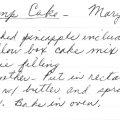 mp Cake - Mary
hed pineapple includ
low box cake mix
ie filling
other - Put in recta
w/ butter and spr
. Bake in oven.